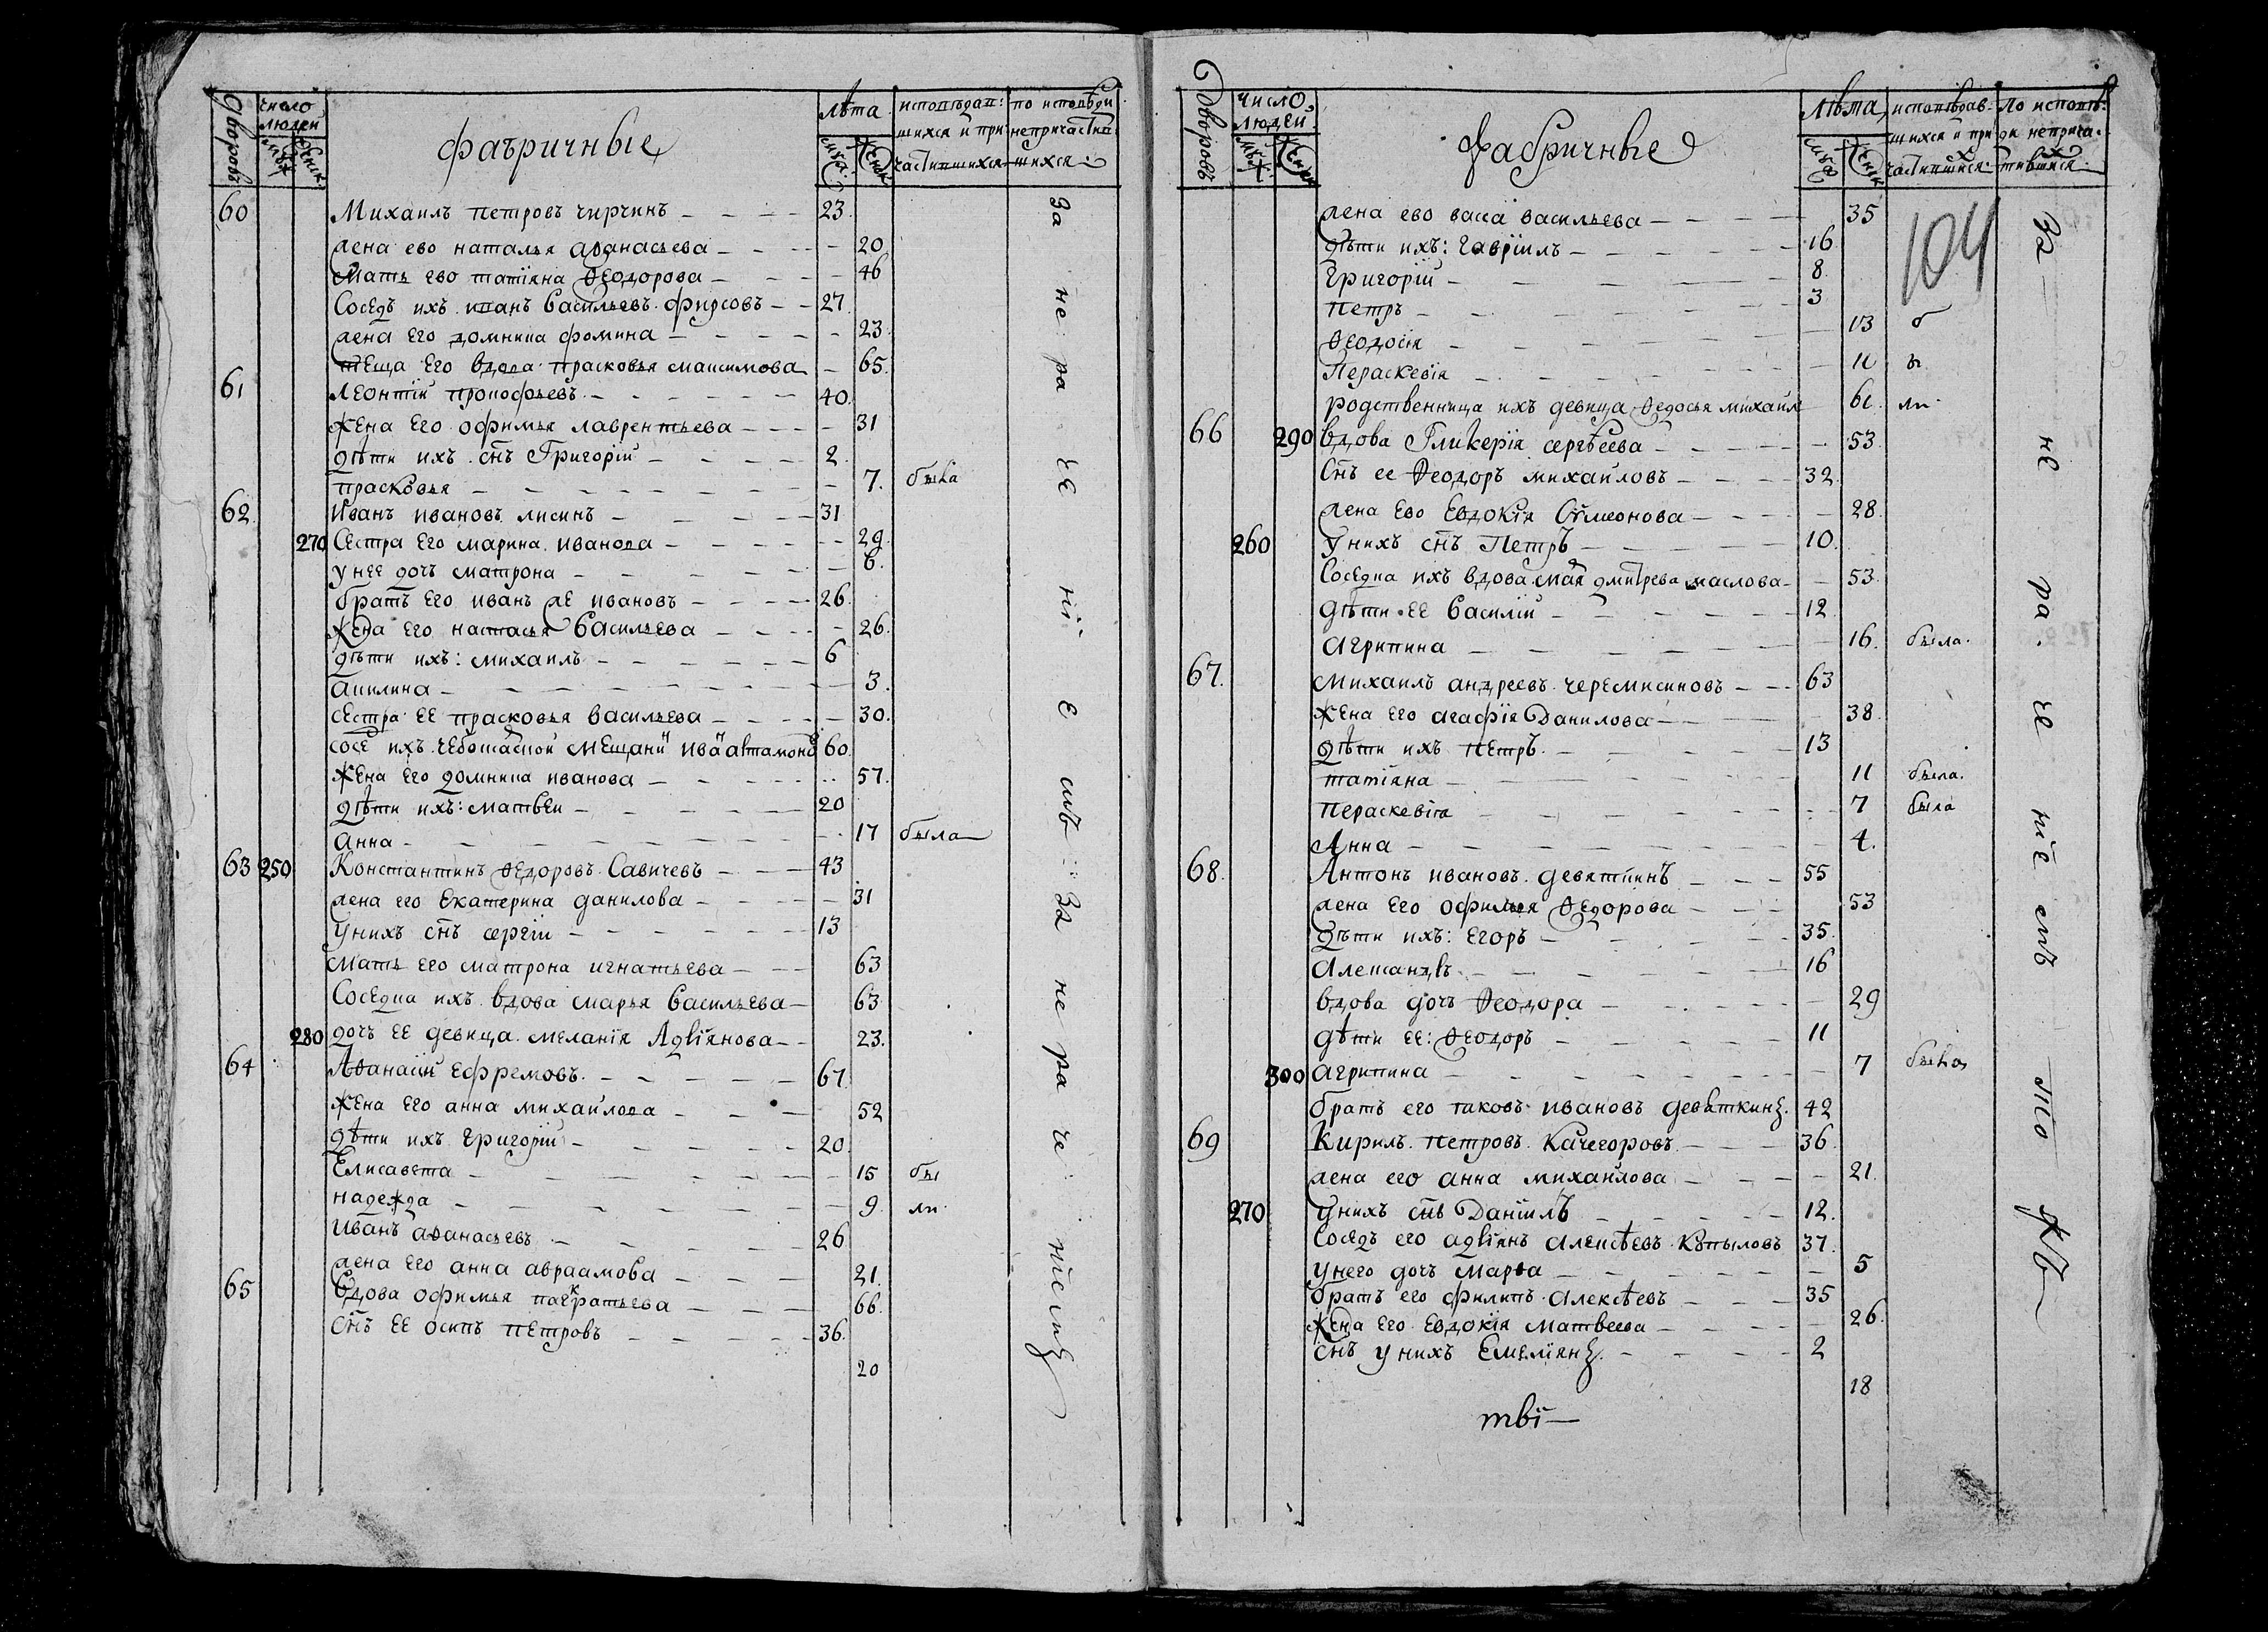 Дворовъ
число людей
муж
женск.
фабричные
Лѣта
муж.
женск.
исповѣдав: шихся и при частившихся
по исповѣди непричастив шихся
60 Михаилъ петровъ чирчинъ 23
жена ево наталья аѳанасьева 20
Мать ево татіяна Ѳеодорова 46
Соседъ ихъ иванъ Васильевъ фирсовъ 27
жена Его домника фомина 23
теща Его вдова прасковья максимова 65
61 Леонтіи прокофьевъ 40
жена Его офимья лаврентьева 31
дѣти ихъ снъ Григоріи 2
прасковья 7 была
62 Иванъ ивановъ лисинъ 31
270 Сестра Его марина иванова 29
у нее дочь матрона 6
братъ Его иванъ же ивановъ 26
жена Его настасья Васильева 26
дѣти ихъ: михаилъ 6
акилина 3
сестра ЕЕ прасковья васильева 30
60
жена Его домника иванова 57
дѣти ихъ: матвеи 20
анна 17 была
63 250 Константинъ Ѳедоровъ Савичевъ 43
жена его Екатерина данилова 31
у нихъ снъ сергіи 13
мать Его матрона игнатьева 63
Соседка ихъ вдова марья Васильева 63
280 дочь ЕЕ девица меланія Адріянова 23
64 Аѳанасіи Ефремовъ 67
жена Его анна михаилова 52
дѣти ихъ Григоріи 20
Елисавета 15 бы
надежда 9 ли
Иванъ аѳанасьевъ 26
жена Его анна авраамова 21
65 Вдова офимья панкратьева 66
Снъ ЕЕ осипъ петровъ 36
20
за не ра че ніи е мъ за не ра че ніемъ
Дворовъ
число людей
муж
женск
фабричные
Лѣта
муж
женск
исповѣдав шихся и при частившихся
По исповѣ: ди неприча: тившихся
104
жена ево васса васильева 35
дѣти ихъ: Гавріилъ 16
Григоріи 8
петръ 3
Ѳеодосія 13 б
Пераскевія 11 ы
родственница ихъ девица Ѳедосья михаил 61 ли
66 290 вдова Гликерія сергѣева 53
Снъ ее Ѳеодоръ михаиловъ 32
жена Ево Евдокія Сѵмеонова 28
260 у нихъ снъ Петръ 10
Соседка ихъ вдова дмитрева маслова 53
дѣти ЕЕ Василіи 12
агрипина 16 была
67 михаилъ андреевъ черемисиновъ 63
жена Его агафія Данилова 38
дѣти ихъ петръ 13
татіяна 11 была
пераскевіа 7 была
Анна 4
68 Антонъ ивановъ девяткинъ 55
жена Его офимья Ѳедорова 53
дѣти ихъ: Егоръ 35
Александъ 16
вдова дочь Ѳеодора 29
дѣти ЕЕ: Ѳеодоръ 11
300 агрипина 7 была
братъ его іаковъ ивановъ девяткинъ 42
69 Кирилъ петровъ Качегоровъ 36
жена его анна михаилова 21
270 у нихъ снъ Даніилъ 12
Соседъ его адріянъ алексѣевъ Копыловъ 37
у него дочь марѳа 5
братъ его филипъ Алексѣевъ 35
жена Его Евдокія матвеева 26
снъ у нихъ Емеліянъ 2
18
за не ра че ніе мъ